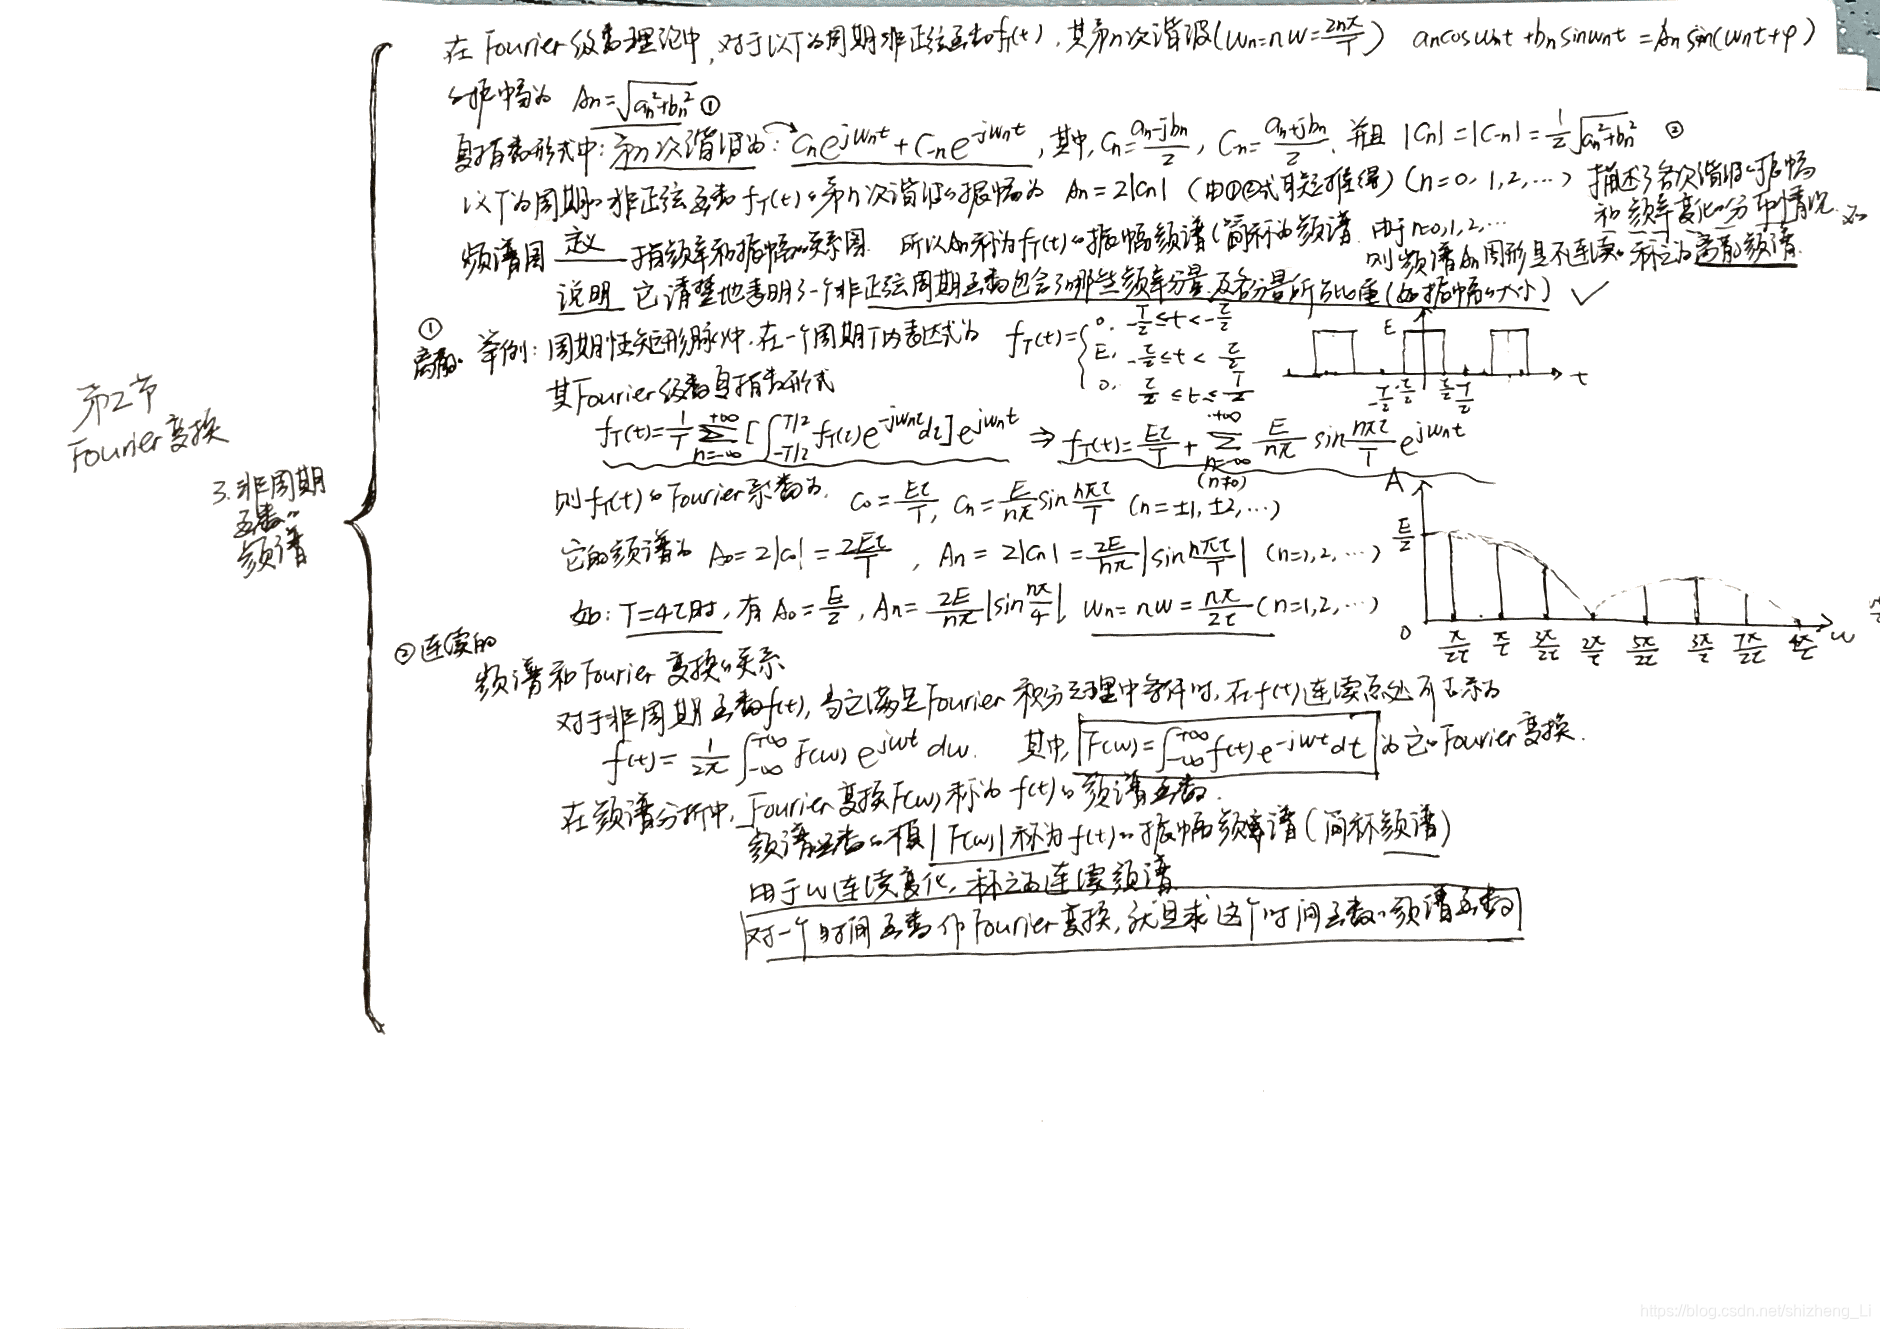 在Fourier级数理论中，对于以T为周期非正弦函数fT(t)，其第n次谐波(ωn=nω=2nπ/T) ancosωnt+bnsinωnt=Ansin(ωnt+φ)
的振幅为 An=√(an²+bn²) ①
复指数形式中：第n次谐波为：cne^{jωnt}+c-ne^{-jωnt}，其中，Cn=(an-jbn)/2，C-n=(an+jbn)/2，并且 |Cn|=|C-n|=1/2√(an²+bn²) ②
以T为周期的非正弦函数fT(t)的第n次谐波的振幅为 An=2|Cn| (由①②式联立推得) (n=0,1,2,…) 描述了各次谐波的振幅
和频率变化的分布情况.
频谱图 定义 指频率和振幅的关系图. 所以An称为fT(t)的振幅频谱(简称为频谱. 由于n=0,1,2,…
则频谱An图形是不连续的 称之为离散频谱.
说明 它清楚地表明了一个非正弦周期函数包含了哪些频率分量及各分量所占比重(如振幅的大小) ✓
① 离散的
举例：周期性矩形脉冲，在一个周期T内表达式为 fT(t)={0, -T/2≤t<-τ/2
E, -τ/2≤t<τ/2
0, τ/2≤t≤T/2
E t -T/2 -τ/2 τ/2 T/2
其Fourier级数复指数形式
fT(t)=1/T Σ_{n=-∞}^{+∞}[∫_{-T/2}^{T/2}fT(τ)e^{-jωnτ}dτ]e^{jωnt} ⇒ fT(t)=Eτ/T+Σ_{n=-∞ (n≠0)}^{+∞} E/nπ sin nπτ/T e^{jωnt}
则fT(t)的Fourier系数为. C0=Eτ/T, Cn=E/nπ sin nπτ/T (n=±1,±2,…)
它的频谱为 A0=2|C0|=2Eτ/T, An=2|Cn|=2E/nπ|sin nπτ/T| (n=1,2,…)
如：T=4τ时，有A0=E/2, An=2E/nπ|sin nπ/4|, ωn=nω=nπ/2τ (n=1,2,…)
A E/2 0 π/2τ π/τ 3π/2τ 2π/τ 5π/2τ 3π/τ 7π/2τ 4π/τ ω
第2节
Fourier变换
3.非周期
函数的
频谱
② 连续的
频谱和Fourier变换的关系
对于非周期函数f(t)，当它满足Fourier积分定理中条件时，在f(t)连续点处可表示为
f(t)=1/2π∫_{-∞}^{+∞}F(ω)e^{jωt}dω. 其中，F(ω)=∫_{-∞}^{+∞}f(t)e^{-jωt}dt 为它的Fourier变换.
在频谱分析中，Fourier变换F(ω)称为f(t)的频谱函数.
频谱函数的模|F(ω)|称为f(t)的振幅频谱(简称频谱)
由于ω连续变化，称之为连续频谱
对一个时间函数作Fourier变换，就是求这个时间函数的频谱函数
https://blog.csdn.net/shizheng_Li